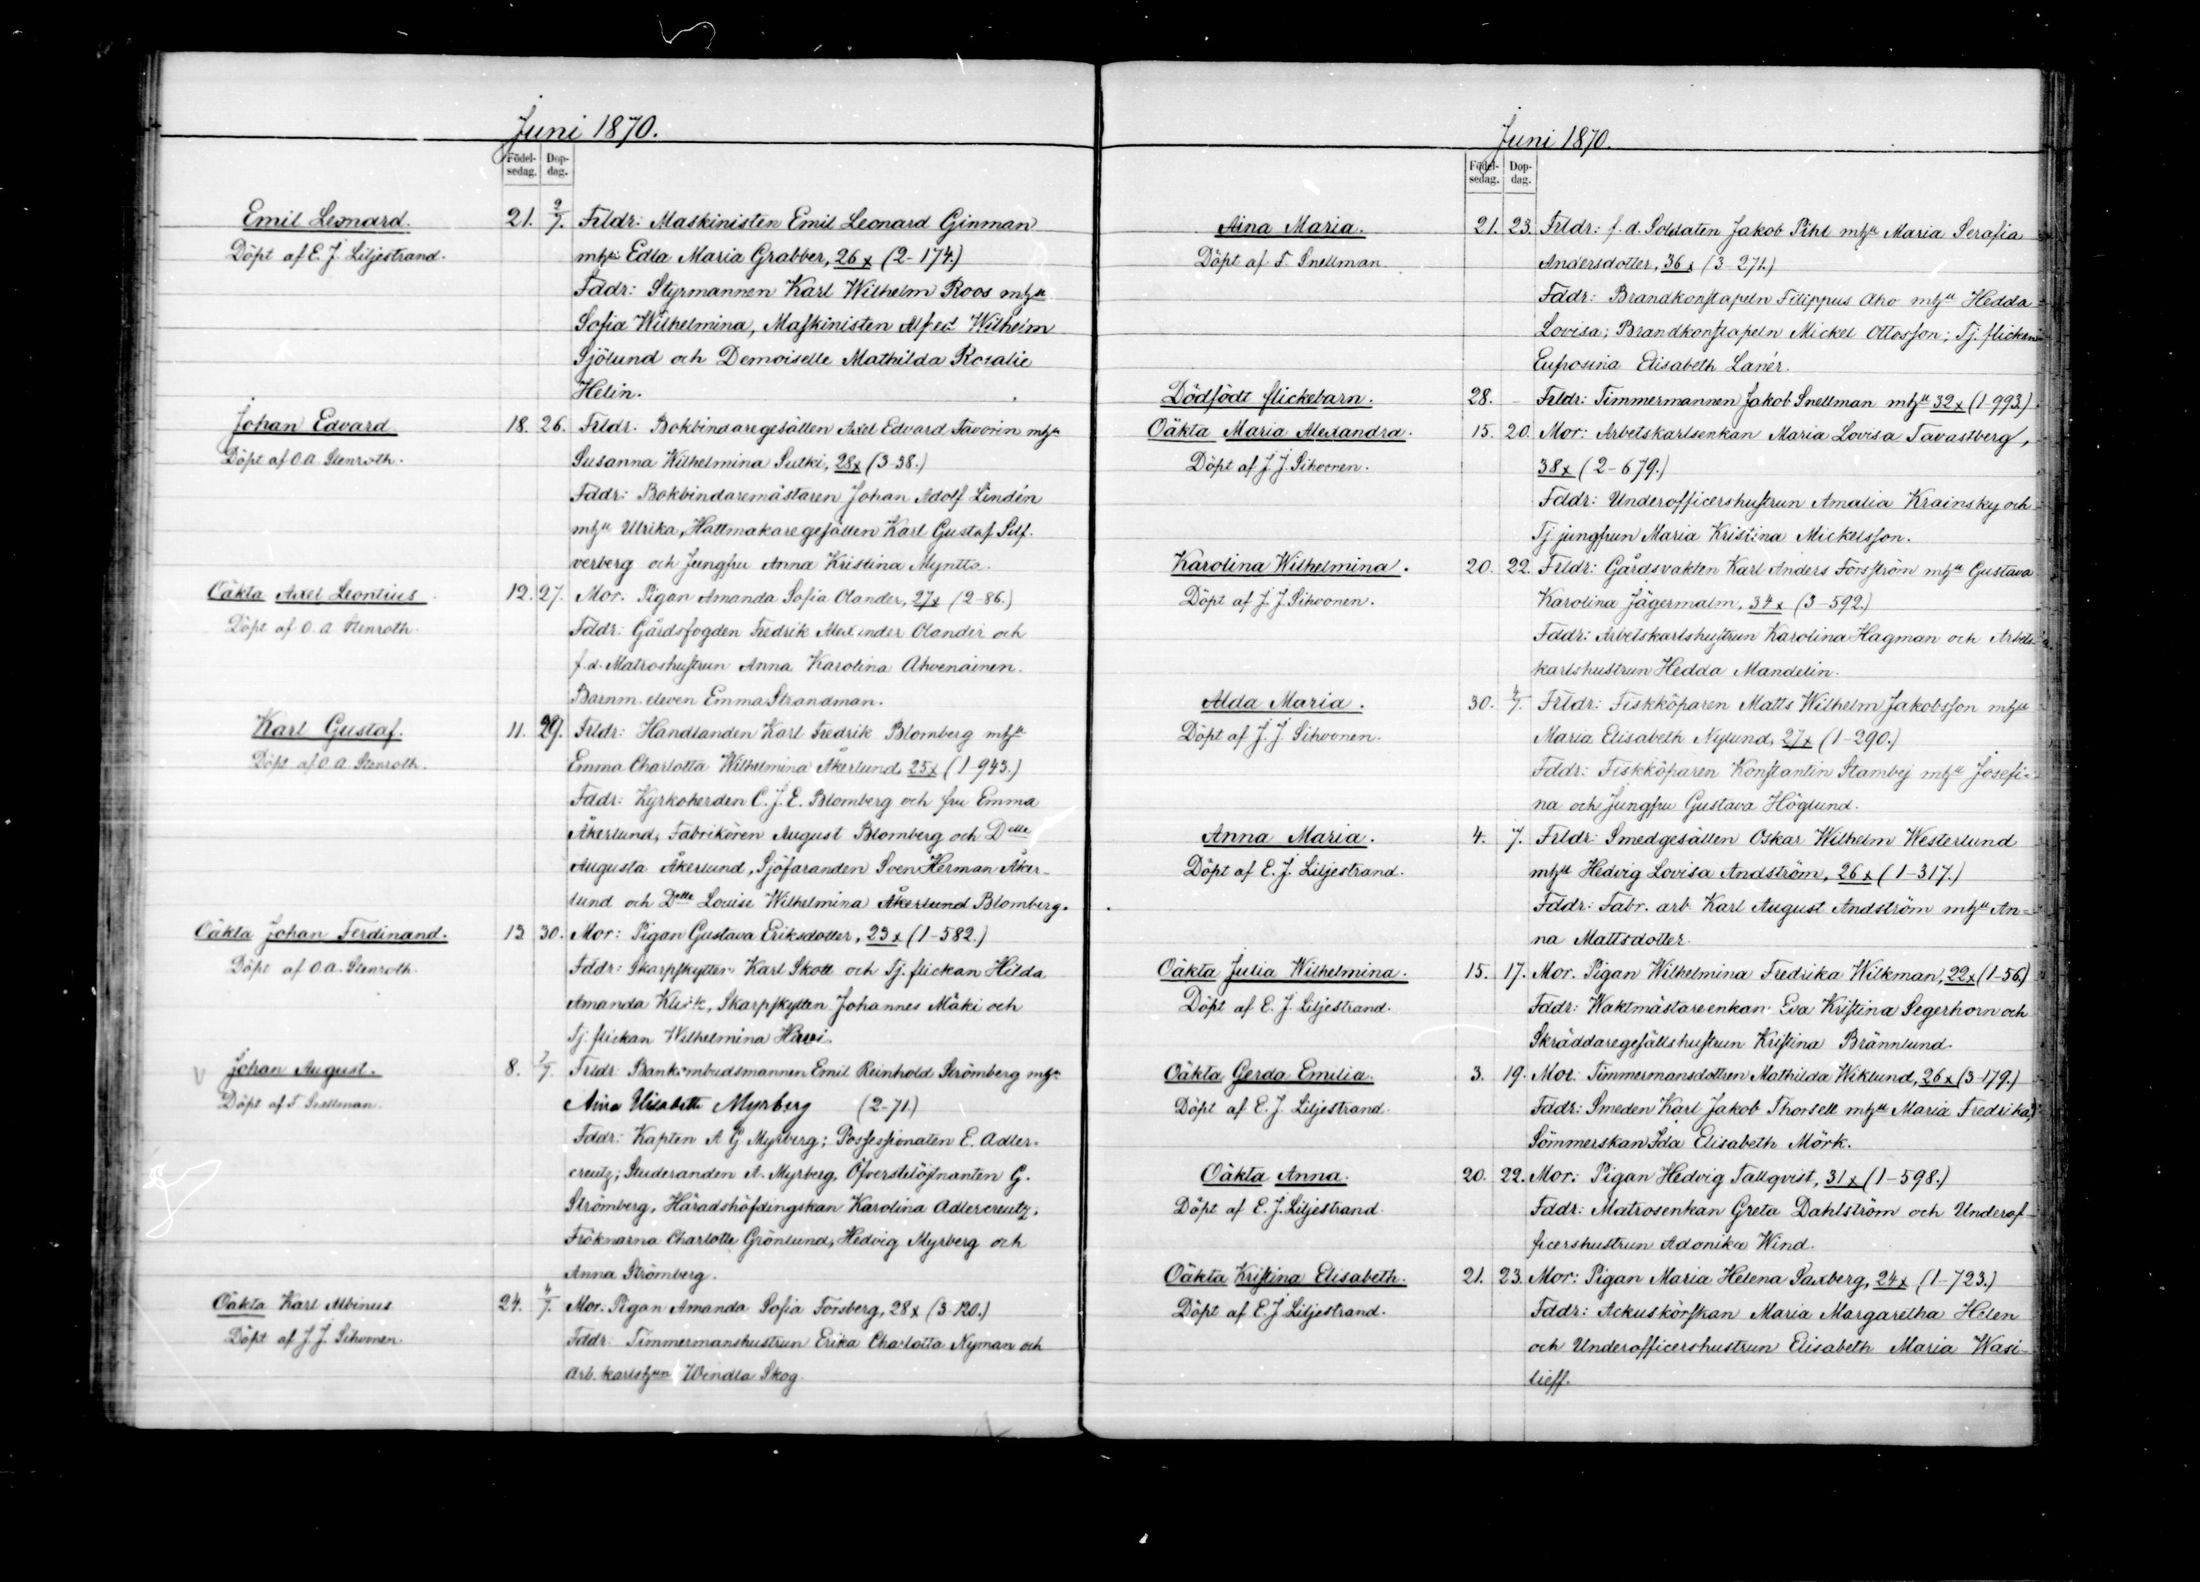 Juni 1870.
Födel-
sedag.
Dop-
dag.
Emil Leonard. 21. 2/7. Frldr: Maskinisten Emil Leonard Ginman
Döpt af E. J. Liljestrand. mhu Edla Maria Grabber, 26 x (2-174.)
Fddr: Styrmannen Karl Wilhelm Roos mhu
Sofia Wilhelmina, Maskinisten Alfred Wilhelm
Sjölund och Demoiselle Mathilda Rosalie
Helin.
Johan Edvard 18. 26. Frldr. Bokbindaregesällen Axel Edvard Favorin mhu
Döpt af O. A. Stenroth. Susanna Wilhelmina Sutki, 28x (3-38.)
Fddr: Bokbindaremästaren Johan Adolf Lindén
mhu Ulrika, Hattmakaregesällen Karl Gustaf Silf-
verberg och Jungfru Anna Kristina Myntti.
Oäkta Axel Leontius 12. 27. Mor. Pigan Amanda Sofia Olander, 27x (2-86.)
Döpt af O. A. Stenroth. Fddr: Gårdsfogden Fredrik Alexander Olander och
f.d. Matroshustrun Anna Karolina Ahvenainen.
Barnm. eleven Emma Strandman.
Karl Gustaf. 11. 29. Frldr: Handlanden Karl Fredrik Blomberg mhu
Döpt af O. A. Stenroth. Emma Charlotta Wilhelmina Åkerlund, 25x (1-943.)
Fddr: Kyrkoherden C. J. E. Blomberg och fru Emma
Åkerlund, Fabrikören August Blomberg och Delle
Augusta Åkerlund, Sjöfaranden Sven Herman Åker-
lund och Delle Louise Wilhelmina Åkerlund Blomberg.
Oäkta Johan Ferdinand. 13. 30. Mor: Pigan Gustava Eriksdotter, 23x (1-582.)
Döpt af O. A. Stenroth. Fddr: Skarpskytten Karl Skott och Tj. flickan Hilda
Amanda Klick, Skarpskytten Johannes Mäki och
Tj. flickan Wilhelmina Havi.
Johan August. 8. 1/7. Frldr: Bankombudsmannen Emil Reinhold Strömberg mhu
Döpt af F. Snellman. Aina Elisabeth Myrberg (2-71.)
Fddr: Kapten A G Myrberg; Possessionaten E. Adler-
creutz; Studeranden A. Myrberg, Öfverstelöjtnanten G.
Strömberg, Häradshöfdingskan Karolina Adlercreutz;
Fröknarna Charlotte Grönlund, Hedvig Myrberg och
Anna Strömberg.
Oäkta Karl Albinus 24. 4/7. Mor: Pigan Amanda Sofia Forsberg, 28x (3-120.)
Döpt af J. J. Sihvonen. Fddr: Timmermanshustrun Erika Charlotta Nyman och
Arb. karlshun Wendla Skog.
Juni 1870.
Födel-
sedag.
Dop-
dag.
Aina Maria. 21. 23. Frldr: f. d. Soldaten Jakob Pihl mhu Maria Serafia
Döpt af F. Snellman Andersdotter, 36 x (3-271.)
Fddr: Brandkonstapeln Filippus Aho mhu Hedda
Lovisa; Brandkonstapeln Mickel Ottosson; Tj. flickan
Eufrosina Elisabeth Lanér.
Dödfödt flickebarn. 28. - Frldr: Timmermannen Jakob Snellman mhu 32x (1-993.)
Oäkta Maria Alexandra. 15. 20. Mor: Arbetskarlsenkan Maria Lovisa Tavastberg,
Döpt af J. J. Sihvonen. 38x (2-679.)
Fddr: Underofficershustrun Amalia Krainsky och
Tj jungfrun Maria Kristina Mickelsson.
Karolina Wilhelmina. 20. 22. Frldr: Gårdsvakten Karl Anders Forsström mhu Gustava
Döpt af J. J. Sihvonen. Karolina Jägermalm, 34x (3-592.)
Fddr: Arbetskarlshustrun Karolina Hagman och Arbets-
karlshustrun Hedda Mandelin.
Alda Maria. 30. 4/7. Frldr: Fiskköparen Matts Wilhelm Jakobsson mhu
Döpt af J. J. Sihvonen. Maria Elisabeth Nylund, 27x (1-290.)
Fddr: Fiskköparen Konstantin Stambej mhu Josefi-
na och Jungfru Gustava Höglund.
Anna Maria. 4. 7. Frldr: Smedgesällen Oskar Wilhelm Westerlund
Döpt af E. J. Liljestrand. mhu Hedvig Lovisa Andström, 26 x (1-317.)
Fddr: Fabr. arb. Karl August Andström mhu An-
na Mattsdotter.
Oäkta Julia Wilhelmina. 15. 17. Mor. Pigan Wilhelmina Fredrika Wilkman, 22x (1-56.)
Döpt af E. J. Liljestrand. Fddr: Waktmästareenkan Eva Kristina Segerhorn och
Skräddaregesällshustrun Kristina Brännlund.
Oäkta Gerda Emilia. 3. 19. Mor: Timmermansdottren Mathilda Wiklund, 26x (3-179.)
Döpt af E. J. Liljestrand. Fddr: Smeden Karl Jakob Thorsell mhu Maria Fredrika,
Sömmerskan Ida Elisabeth Mörk.
Oäkta Anna. 20. 22. Mor: Pigan Hedvig Tallqvist, 31x (1-598.)
Döpt af E. J. Liljestrand. Fddr: Matrosenkan Greta Dahlström och Underof-
ficershustrun Adonika Wind.
Oäkta Kristina Elisabeth. 21. 23. Mor: Pigan Maria Helena Saxberg, 24x (1-723.)
Döpt af E J Liljestrand. Fddr: Ackuskörskan Maria Margaretha Helen
och Underofficershustrun Elisabeth Maria Wasi-
lieff.